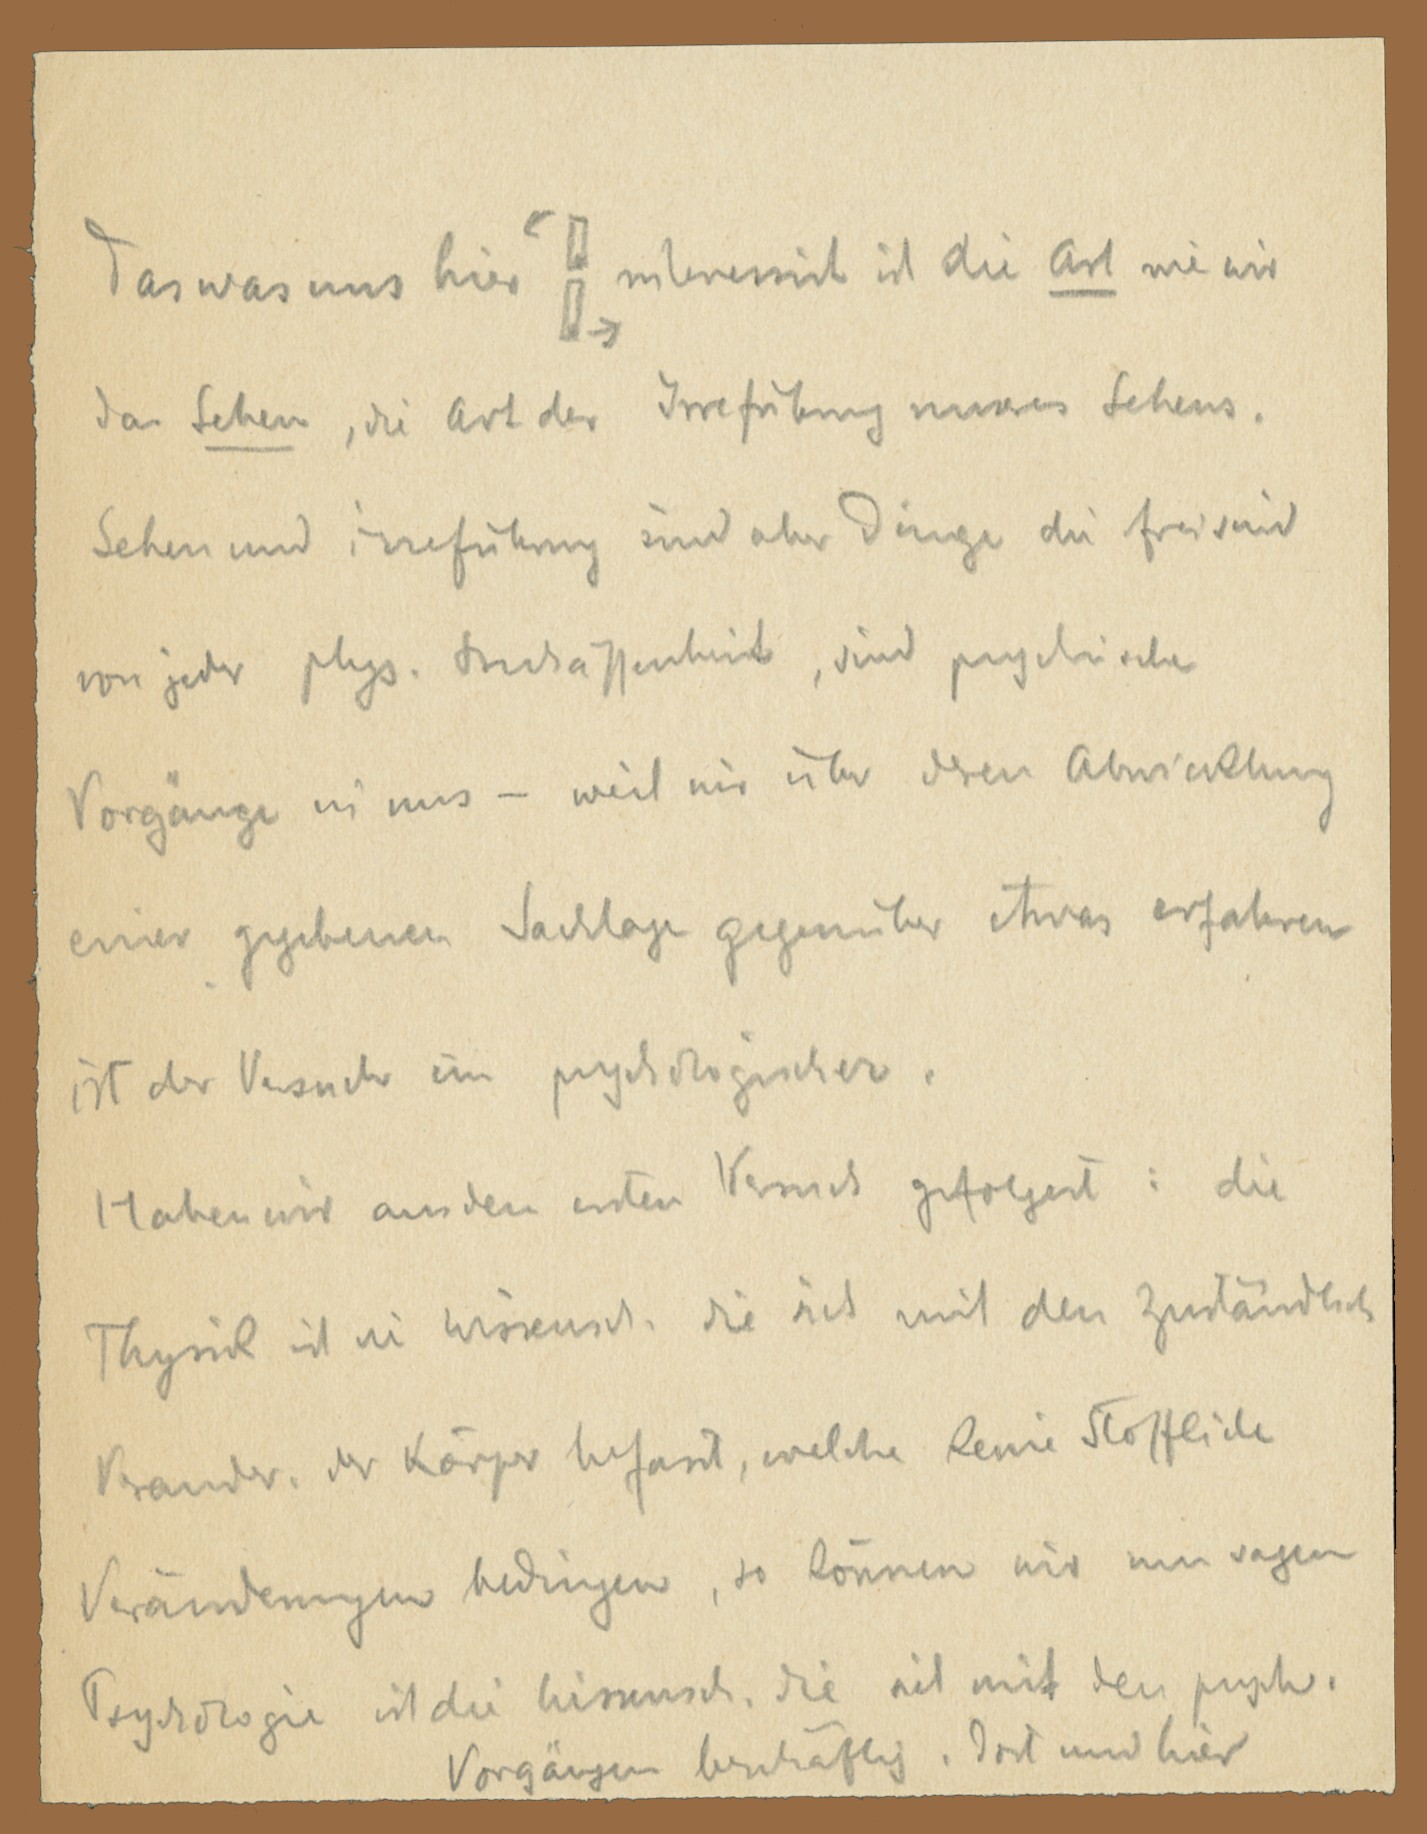 Das was uns hier interessirt ist die Art wie wir
da Sehen, die Art der Irreführung unseres Sehens.
Sehen und irreführung sind aber Dinge die frei sind
von jeder phys. Beschaffenheit, sind psychische
Vorgänge in uns – weil wir über deren Abwicklung
einer gegebenen Sachlage gegenüber etwas erfahren
ist der Versuch ein psychologischer.
Haben wir aus den ersten Versuch gefolgert : die
Physik ist die Wissensch. die sich mit den Zuständlich
Verander. der Körper befasst, welche keine Stoffliche
Veränderungen bedingen, so können wir nun sagen
Psychologie ist die Wissensch. die sich mit den psych.
Vorgängen beschäftig. Dort und hier